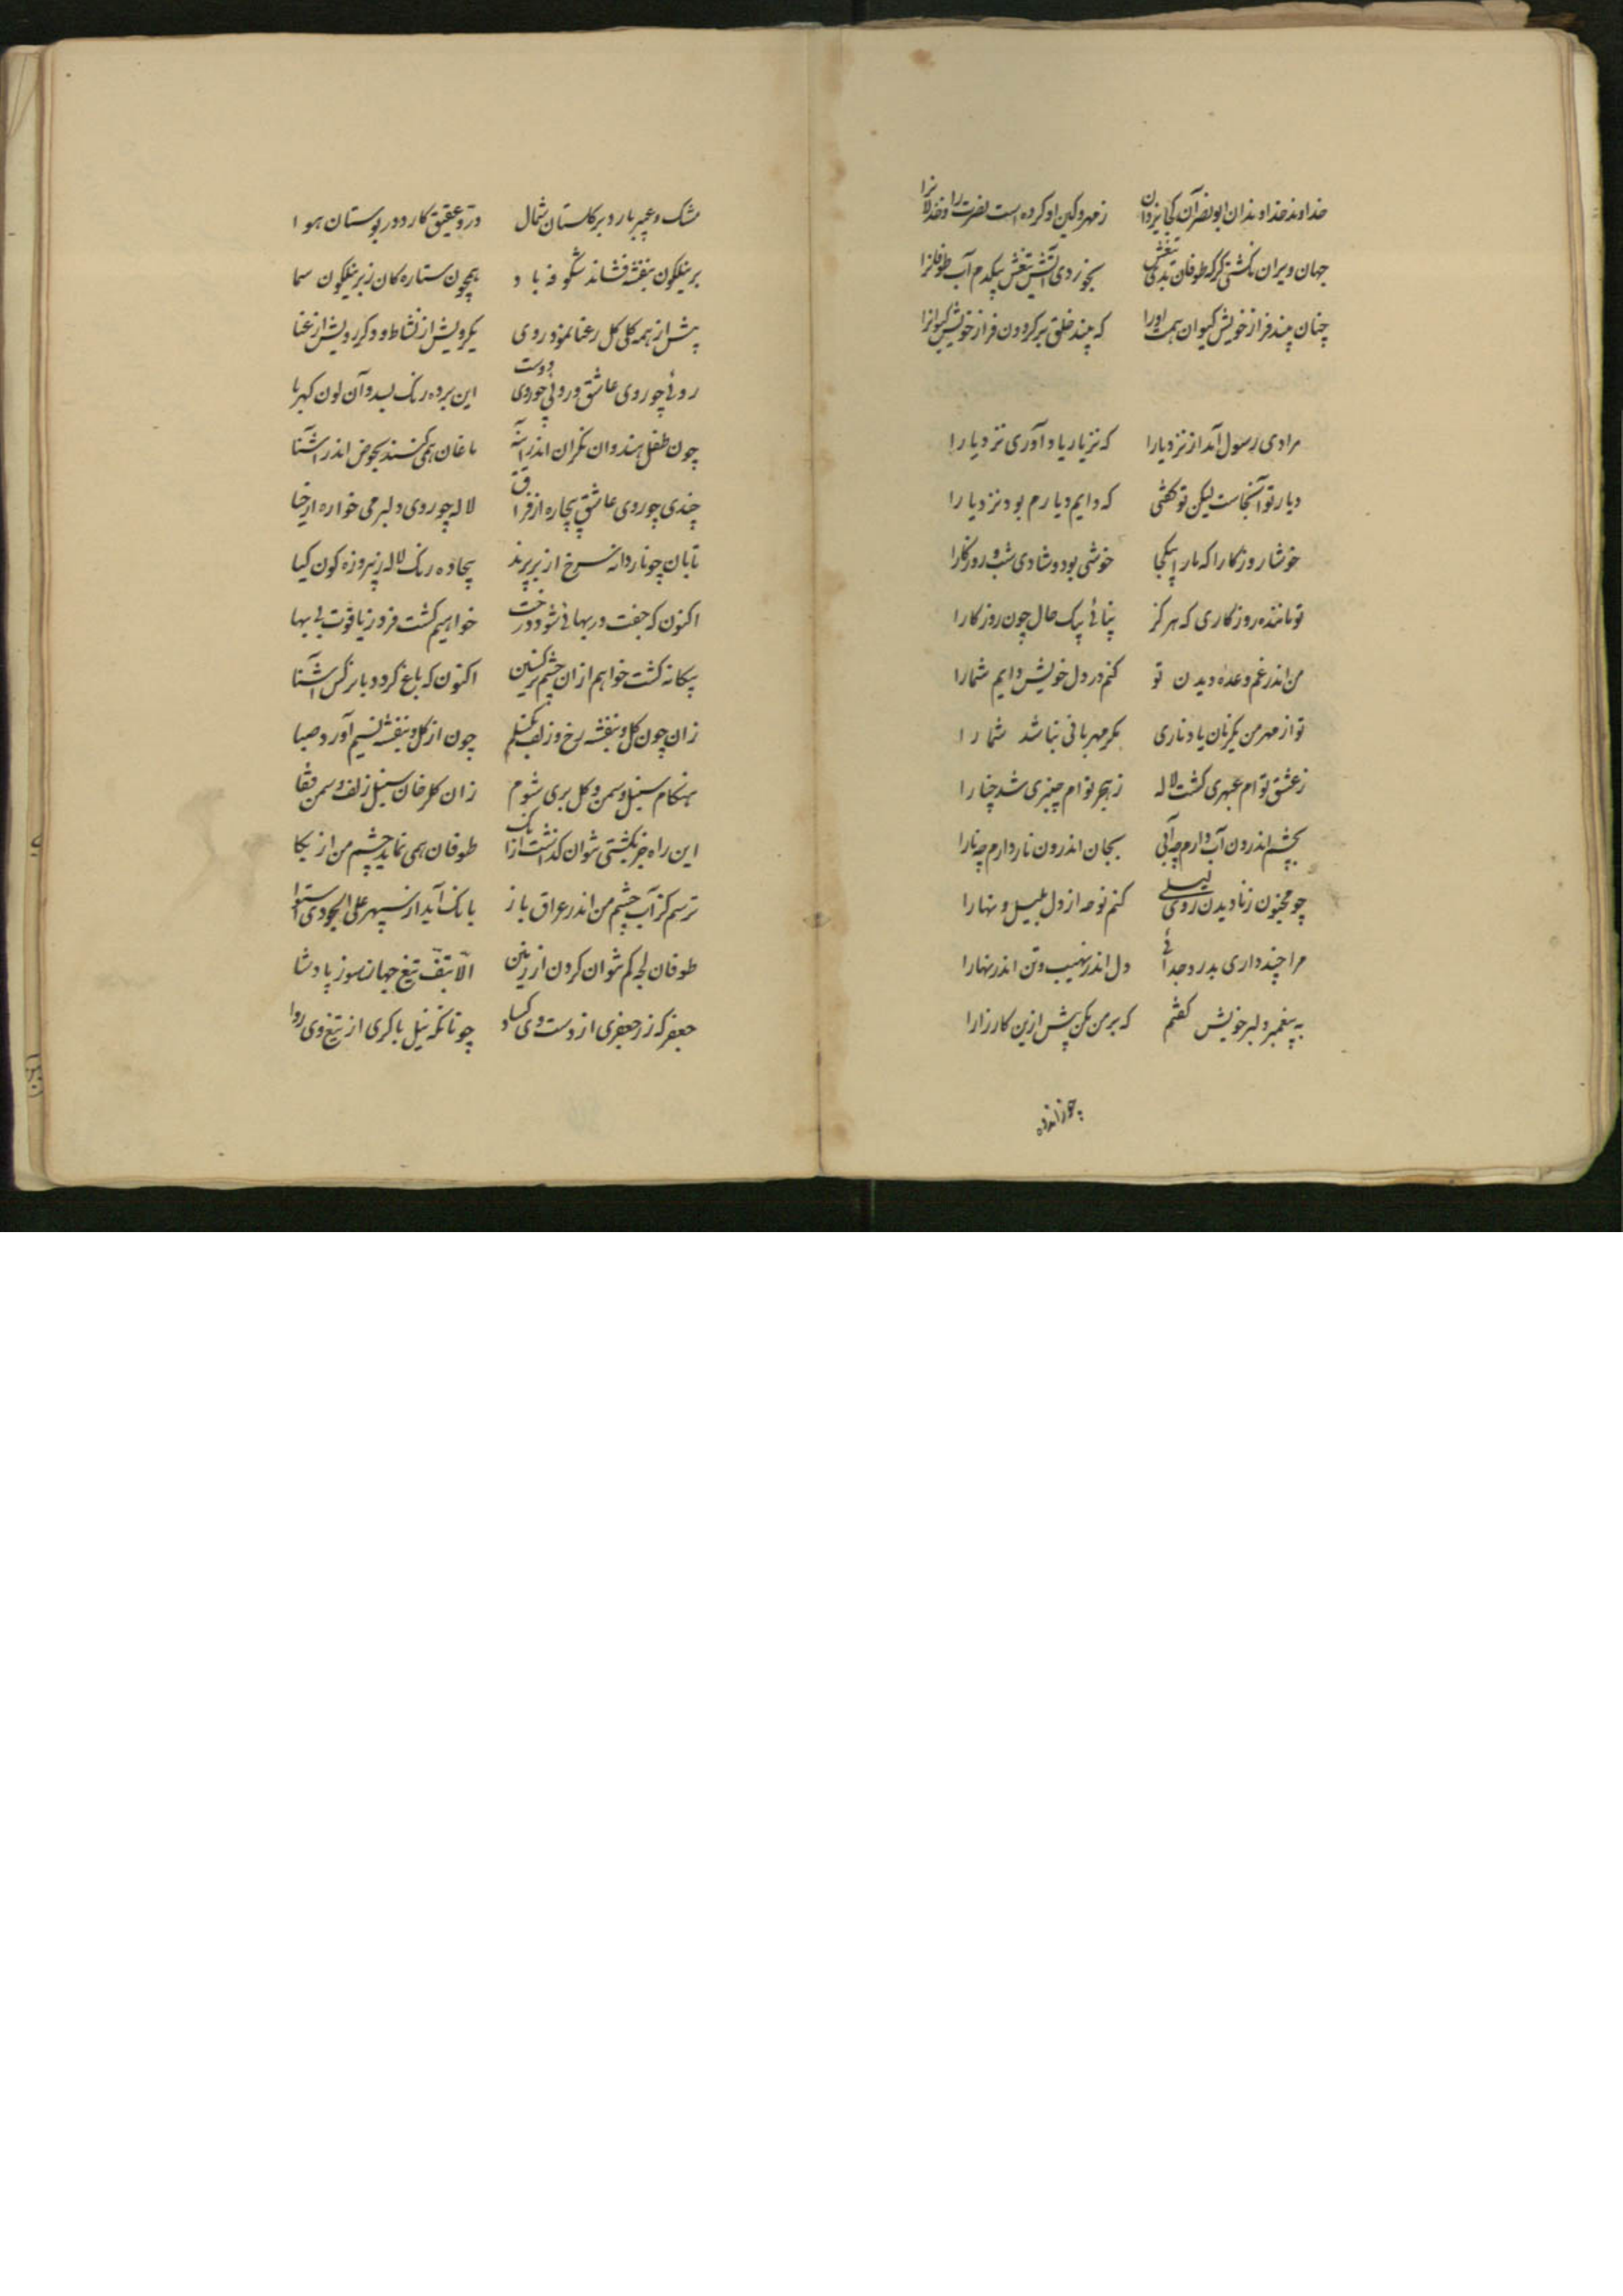 خداوند خداوندان ابونصر آن کجا یزدان زمهر و کین او کرده است نصرت را و خذلانرا
جهان ویران نگشتی گر که طوفان بدی تیغش بخوردی آتش تیغش بیکدم آب طوفانرا
چنان بیند فراز خویش کیوان همت اورا که بیند خلق بر گردون فراز خویش کیوانرا
مرا دی رسول آمد از نزد یارا که نزیار یاد آوری نزد یارا
دیار تو آنجاست لیکن تو گفتی که دایم دیارم بود نزد یارا
خوشا روزگارا که ما را بیکجا خوشی بود و شادی شب و روزگارا
تو مانندهٔ روزگاری که هرگز نپائی بیک حال چون روزگارا
من اندر غم وعدهٔ دیدن تو کنم در دل خویش دایم شمارا
تو از مهر من یکزمان یاد ناری مگر مهربانی نباشد شما را
زعشق توام عبهری گشت لاله زهجر توام چنبری شد چنارا
بچشم اندرون آب دارم چه آبی بجان اندرون نار دارم چه نارا
چو مجنون زنادیدن روی لیلی کنم نوحه از دل بلیل و نهارا
مرا چند داری بدرد جدائی دل اندر نهیب و تن اندر نهارا
به پیغمبر دلبر خویش گفتم که بر من مکن بیش ازین کارزارا
مشک و عبیر بارد بر گلستان شمال در و عقیق کارد در بوستان هوا
بر نیلگون بنفشه فشاند شکوفه باد همچون ستارگان زبر نیلگون سما
پیش از همه گلی گل رعنا نمود روی یکرویش از نشاط و دگر رویش از عنا
روئی چو روی عاشق و روئی چو روی دوست این برده رنگ بسد و آن لون کهربا
چون طفل هندوان نگران اندر آینه ماغان همی کنند بحوض اندر آشنا
چندی چو روی عاشق بیچاره از فراق لاله چو روی دلبر می خواره از حیا
تابان چو ناردانه سرخ از بر پرند بیجاده رنگ لاله ز پیروزه گون گیا
اکنون که جفت در بهائی شود درخت خواهیم گشت فرد زیاقوت بی بها
بیگانه گشت خواهم از ان چشم نرگسین اکنون که باغ گردد با نرگس آشنا
زان چون گل و بنفشه رخ و زلف بگسلم چون از گل و بنفشه نسیم آورد صبا
هنگام سنبل و سمن و گل بری شوم زان گلرخان سنبل زلف و سمن قفا
این راه جز بکشتی نتوان گذاشت از آنک طوفان همی نماید چشم من از بکا
ترسم کز آب چشم من اندر عراق باز بانگ آید از سپهر علی الجودی استوا
طوفان لجه کم نتوان کردن از زمین الا بتف تیغ جهانسوز پادشا
جعفر که زر جعفری از دست وی کساد چونانکه نیل باکری از تیغ وی روا